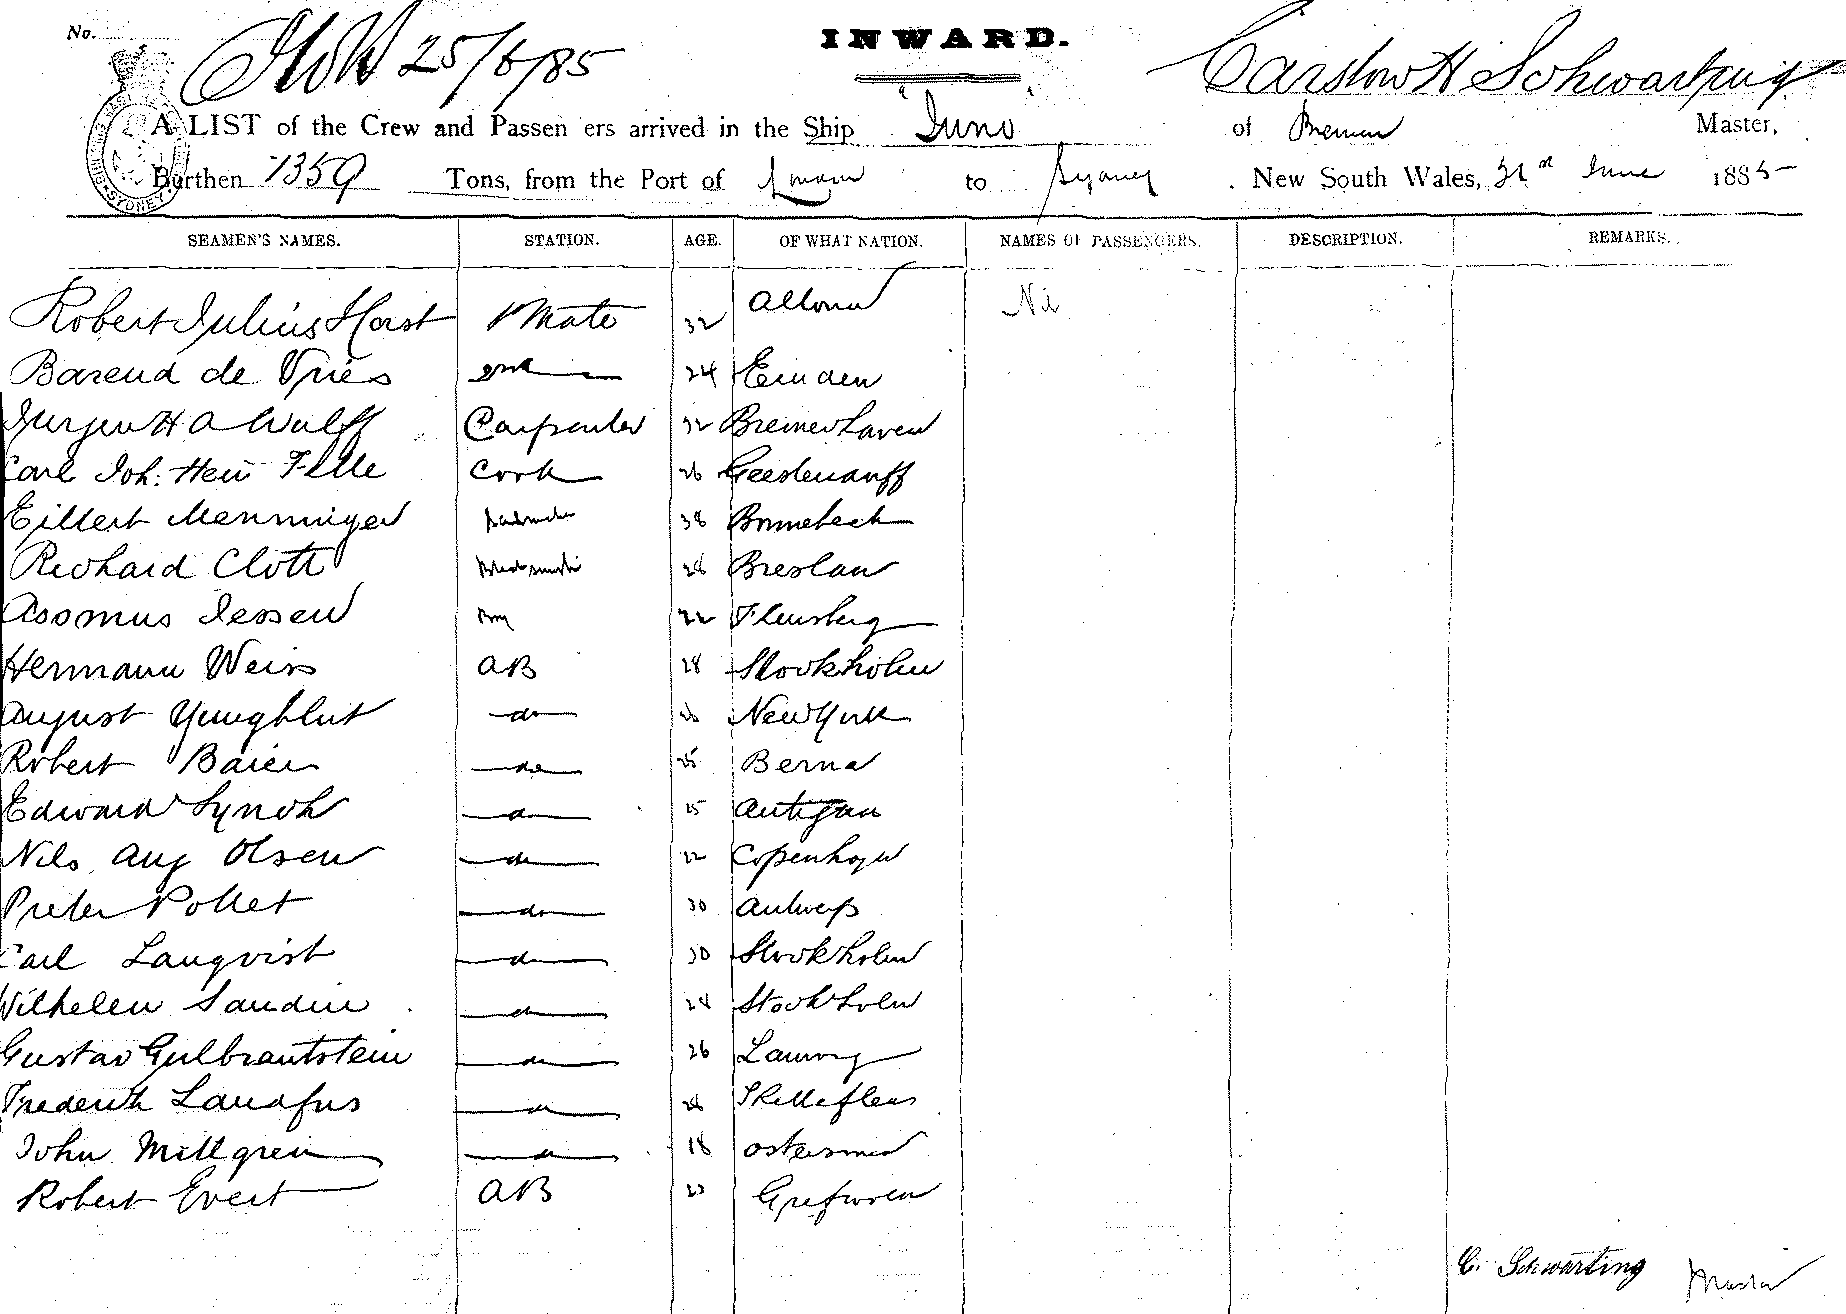 No.
25/6/85
INWARD.
Carstow H Schwarting
A LIST of the Crew and Passen ers arrived in the Ship "Juno" of Bremen Master,
Burthen 1359 Tons, from the Port of to Sydney New South Wales, 21st June 1885
SEAMEN'S NAMES. STATION. AGE. OF WHAT NATION. NAMES OF PASSENGERS. DESCRIPTION. REMARKS.
Robert Julius Horst 1 Mate 32 Altona Nil
Barend de Vries 24 Emden
Jurgen H A Wulff Carpenter 32 Bremerhaven
Carl Joh. Hein Cook 26
Eilert Menninger 38
Richard Clott 28 Breslau
Assmus Jessen Boy 22 Flensberg
Hermann Weiss AB 28 Stockholm
August Yungblut do New York
Robert Baier do 25 Berna
Edward Lynch do 25 Antigua
Nils Aug Olsen do 22 Copenhagen
Pieter Pollet do 30 Antwerp
Carl Lanqvist do 30 Stockholm
Wilhelm Sandin do 28 Stockholm
Gustav Gulbrantstein do 26
Frederik do
John Mellgren do 18
Robert Evert AB 23
C. Schwarting Master